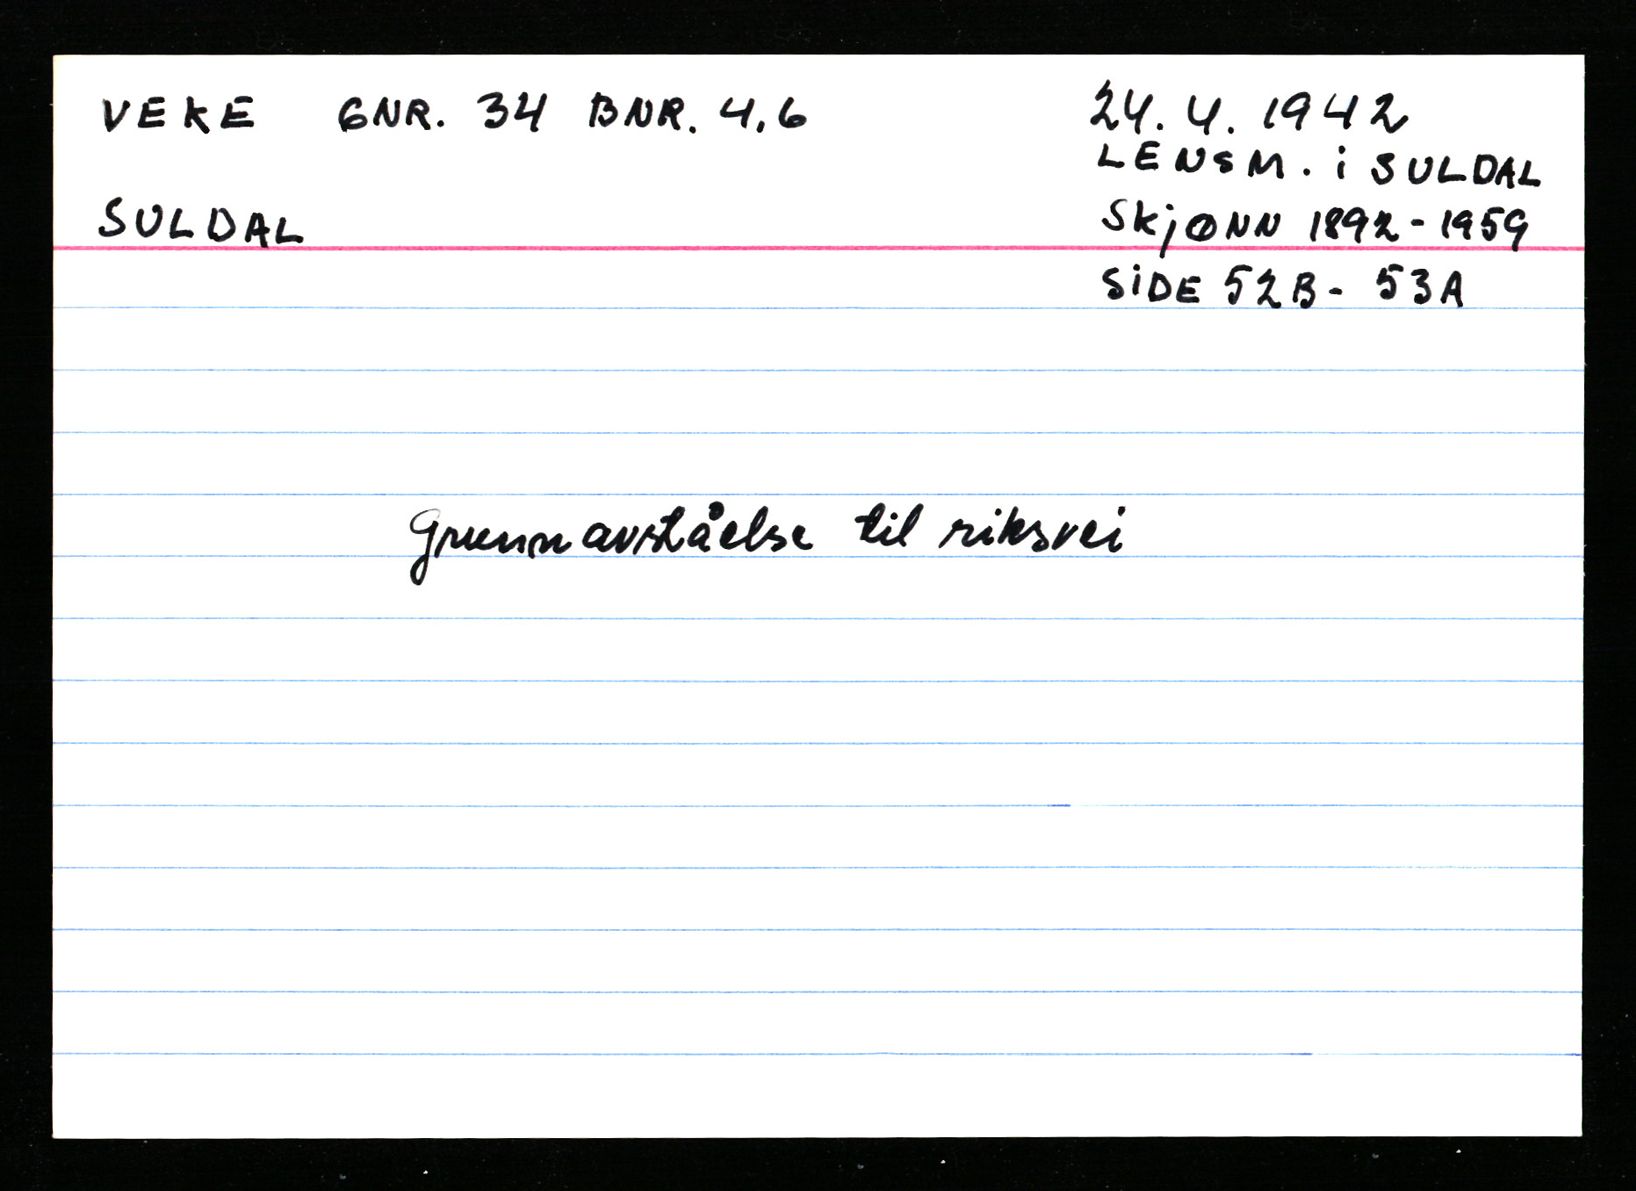 VEKE GNR. 34 BNR. 4,6
SULDAL
24. 4. 1942
LENSM. i SULDAL
SKjØNN 1892-1959
SiDE 52B - 53A
Grunnavståelse til riksvei